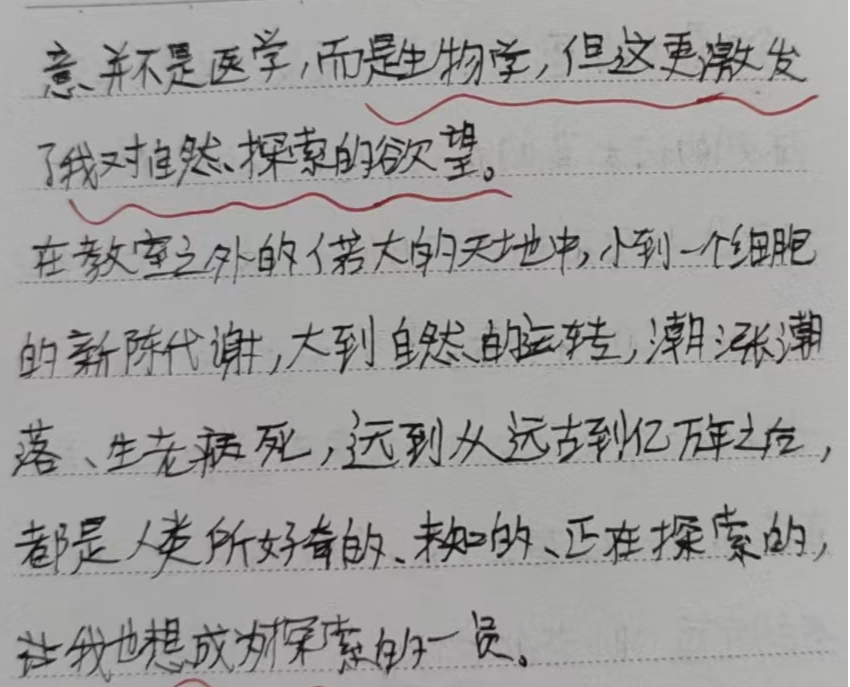 意并不是医学,而是生物学,但这更激发
了我对自然、探索的欲望。
在教室之外的偌大的天地中,小到一个细胞
的新陈代谢,大到自然的运转,潮涨潮
落、生老病死,远到从远古到亿万年之后,
都是人类所好奇的、未知的、正在探索的,
让我也想成为探索的一员。